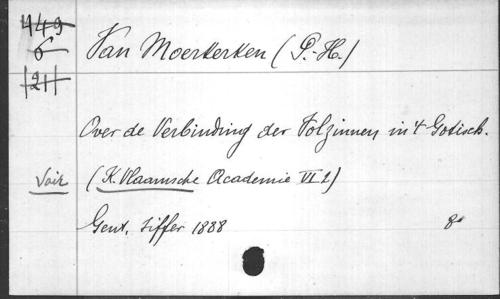 449
6
121
Van Moerkerken (P.-H.)
Over de Verbinding der Volzinnen in 't Gotisch.
Voir (K. Vlaamsche Academie VI 2)
Gent, Siffer 1888 8°